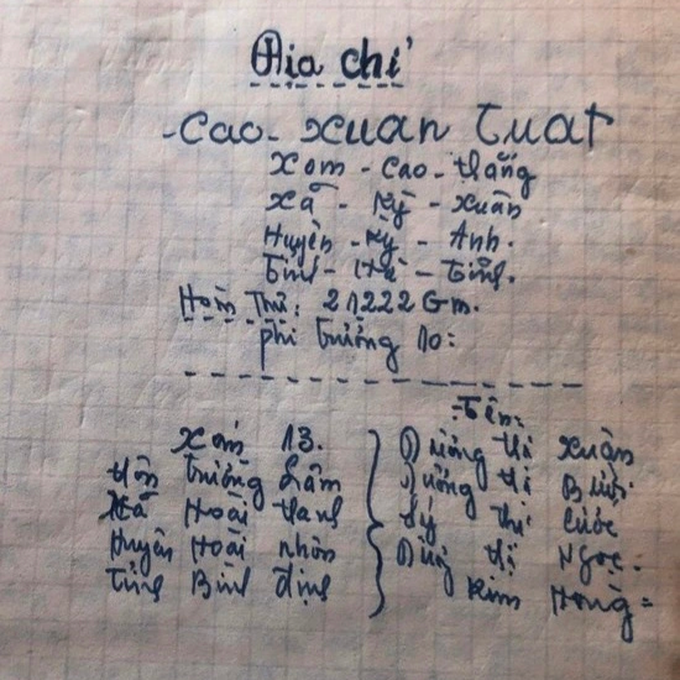 Địa chỉ
- Cao - Xuan Tuat
Xom - Cao - thắng
Xã - Kỳ - Xuân
Huyện - Kỳ - Anh.
Tỉnh - Hà - Tĩnh.
Hòm Thư: 21222 Gm.
phi trường 10:
Tên:
Xóm 13.
thôn trường Lâm
Xã Hoài thanh
Huyện Hoài nhơn
Tỉnh Bình định
Dương thị Xuân
Dương thị Bưởi
Lý thị cước
thị Ngọc.
Kim Hồng =